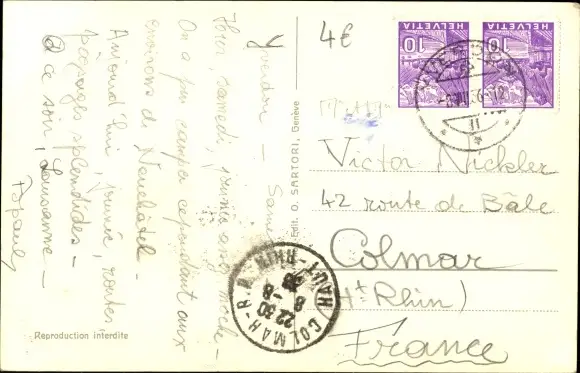 Yverdon – Samedi
Hier samedi, journée assez moche –
On a pu camper cependant aux
environs de Neuchâtel –
Aujourd'hui, journée, routes,
paysages splendides –
à ce soir, Lausanne –
Reproduction interdite
Edit. O. SARTORI, Genève
4€
10 HELVETIA
10 HELVETIA
YVERDON
Victor Nickler
42 route de Bâle
Colmar
(Ht Rhin)
France
COLMAR-R.P.
22 30
8-8
36
HAUT-RHIN